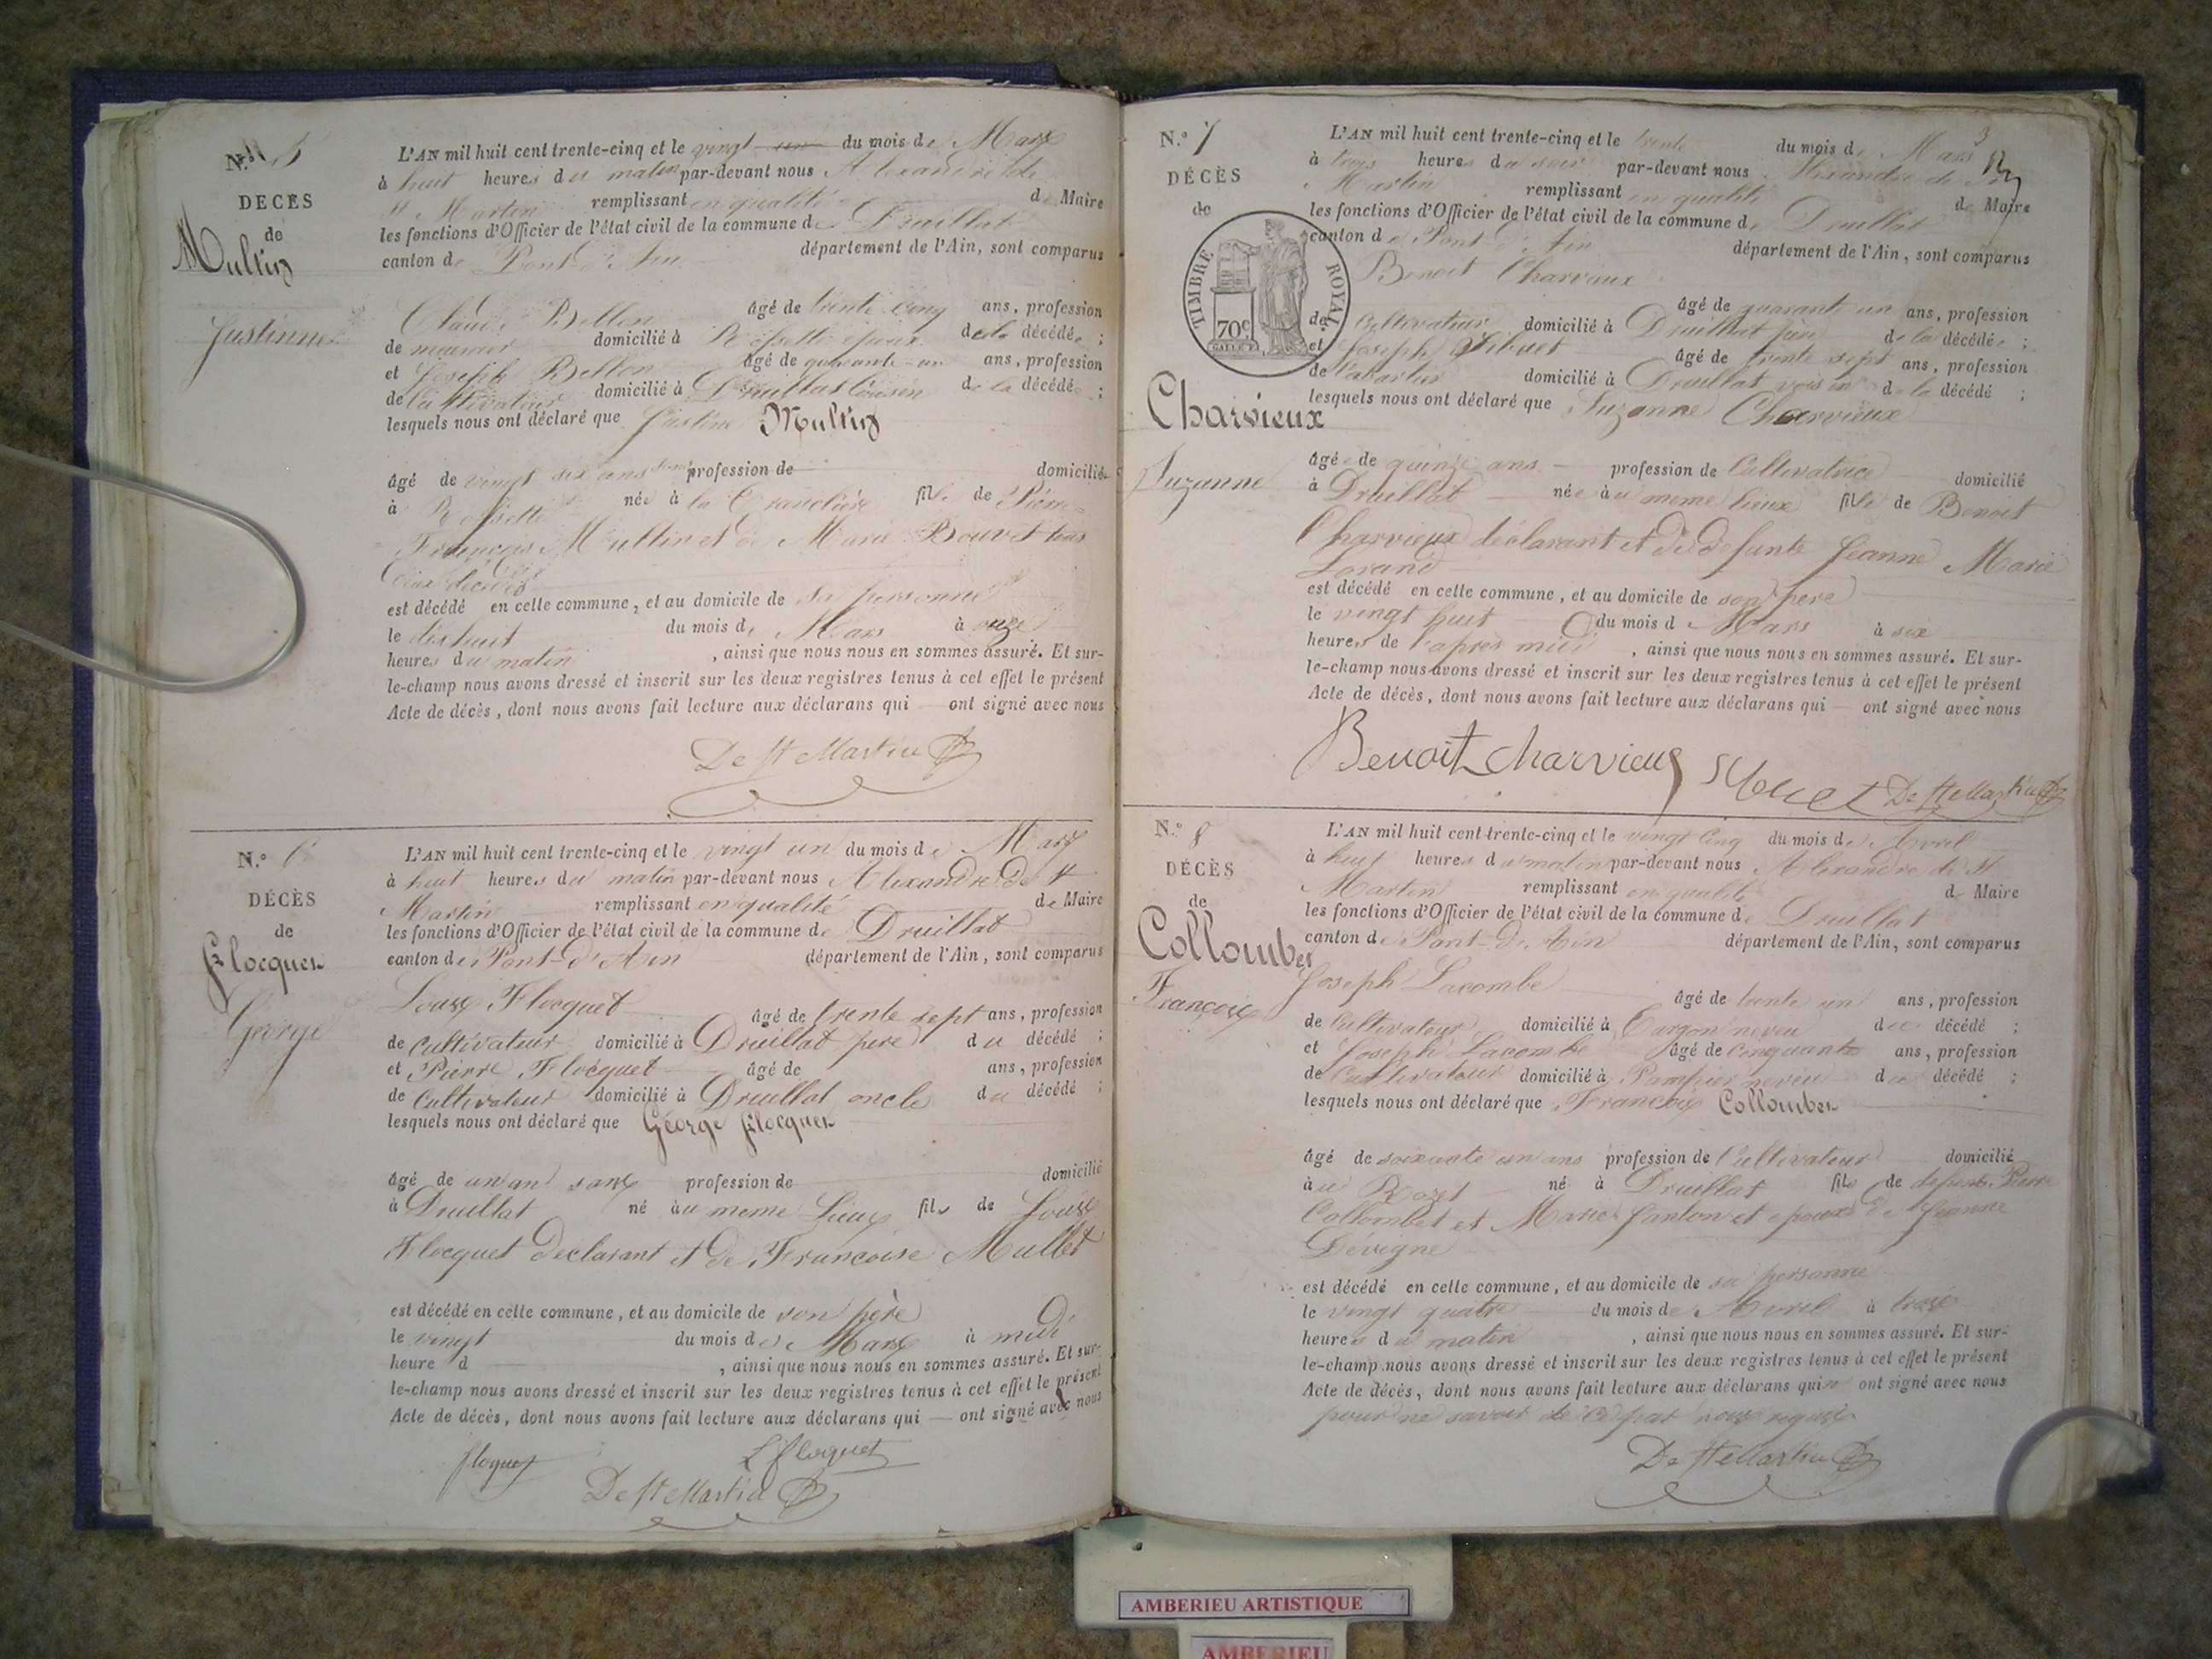 N.º 5
DÉCÈS
de
Multin
Justinne
L'AN mil huit cent trente-cinq et le vingt un du mois de Mars
à huit heures du matin par-devant nous Alexandre de
St Martin remplissant en qualité de Maire
les fonctions d'Officier de l'état civil de la commune de Druillat
canton de Pont d'Ain département de l'Ain, sont comparus
Claude Bellon âgé de trente cinq ans, profession
de domicilié à Rossette époux de la décédée ;
et Joseph Bellon âgé de quarante-un ans, profession
de cultivateur domicilié à Druillat cousin de la décédée ;
lesquels nous ont déclaré que Justine Multin
âgé de vingt six ans profession de domiciliée
à Rossette née à la Tranclière fille de Pierre
François Multin et de Marie Bouvet tous
deux décédés
est décédé en celle commune, et au domicile de sa personne
le dix huit du mois de Mars à onze
heures du matin , ainsi que nous nous en sommes assuré. Et sur-
le-champ nous avons dressé et inscrit sur les deux registres tenus à cet effet le présent
Acte de décès, dont nous avons fait lecture aux déclarans qui — ont signé avec nous
De St Martin
N.º 6
DÉCÈS
de
Flocquet
George
L'AN mil huit cent trente-cinq et le vingt un du mois de Mars
à huit heures du matin par-devant nous Alexandre de St
Martin remplissant en qualité de Maire
les fonctions d'Officier de l'état civil de la commune de Druillat
canton de Pont-d'Ain département de l'Ain, sont comparus
Louis Flocquet âgé de trente sept ans, profession
de cultivateur domicilié à Druillat père du décédé ;
et Pierre Flocquet âgé de ans, profession
de cultivateur domicilié à Druillat oncle du décédé ;
lesquels nous ont déclaré que George Flocquet
âgé de un an sans profession de domicilié
à Druillat né au meme Lieux fils de Louis
Flocquet déclarant et de Françoise Mullet
est décédé en celle commune, et au domicile de son père
le vingt du mois de Mars à midi
heure d , ainsi que nous nous en sommes assuré. Et sur-
le-champ nous avons dressé et inscrit sur les deux registres tenus à cet effet le présent
Acte de décès, dont nous avons fait lecture aux déclarans qui — ont signé avec nous
floquet L floquet
De St Martin
N.º 7
DÉCÈS
de
TIMBRE ROYAL
70c
Charvieux
Suzanne
3
L'AN mil huit cent trente-cinq et le trente du mois de Mars
à trois heures du soir par-devant nous Alexandre de St
Martin remplissant en qualité de Maire
les fonctions d'Officier de l'état civil de la commune de Druillat
canton de Pont d'Ain département de l'Ain, sont comparus
Benoit Charvieux
âgé de quarante un ans, profession
de Cultivateur domicilié à Druillat père de la décédée ;
et Joseph âgé de trente sept ans, profession
de domicilié à Druillat voisin de la décédé ;
lesquels nous ont déclaré que Suzanne Charvieux
âgée de quinze ans — profession de Cultivatrice domicilié
à Druillat née au meme lieux fille de Benoit
Charvieux déclarant et de defunte Jeanne Marie
est décédé en celle commune, et au domicile de son pere
le vingt huit du mois de Mars à six
heures de l'apres midi , ainsi que nous nous en sommes assuré. Et sur-
le-champ nous avons dressé et inscrit sur les deux registres tenus à cet effet le présent
Acte de décès, dont nous avons fait lecture aux déclarans qui — ont signé avec nous
Benoit charvieux De St Martin
N.º 8
DÉCÈS
de
Collombet
François
L'AN mil huit cent trente-cinq et le vingt cinq du mois de Avril
à huit heures du matin par-devant nous Alexandre de St
Martin remplissant en qualité de Maire
les fonctions d'Officier de l'état civil de la commune de Druillat
canton de Pont-d'Ain département de l'Ain, sont comparus
Joseph Lacombe âgé de trente un ans, profession
de Cultivateur domicilié à neveu du décédé ;
et Joseph Lacombe âgé de cinquante ans, profession
de Cultivateur domicilié à neveu du décédé ;
lesquels nous ont déclaré que François Collombet
âgé de soixante un ans profession de Cultivateur domicilié
au né à Druillat fils de defunts Pierre
Collombet et Marie Janton et epoux de Jeanne
Dévigne
est décédé en celle commune, et au domicile de sa personne
le vingt quatre du mois de Avril à trois
heures du matin , ainsi que nous nous en sommes assuré. Et sur-
le-champ nous avons dressé et inscrit sur les deux registres tenus à cet effet le présent
Acte de décès, dont nous avons fait lecture aux déclarans qui ont signé avec nous
pour ne savoir de ce par nous requis
De St Martin
AMBERIEU ARTISTIQUE
AMBERIEU